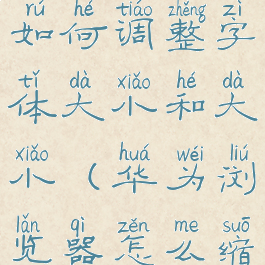 rú hé tiáo zhěng zì
如何调整字
tǐ dà xiǎo hé dà
体大小和大
xiǎo huá wéi liú
小（华为浏
lǎn qì zěn me suō
览器怎么缩